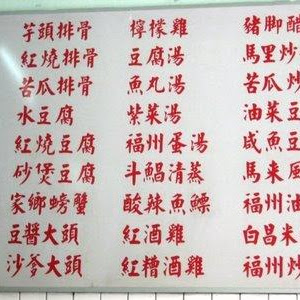 芋頭排骨
紅燒排骨
苦瓜排骨
水豆腐
紅燒豆腐
砂煲豆腐
家鄉螃蟹
豆醬大頭
沙爹大頭
檸檬雞
豆腐湯
魚丸湯
紫菜湯
福州蛋湯
斗鯧清蒸
酸辣魚鰾
紅酒雞
紅糟酒雞
豬脚醋
馬里炒
苦瓜炒
油菜豆
咸魚豆
馬来風
福州油
白昌米
福州炒